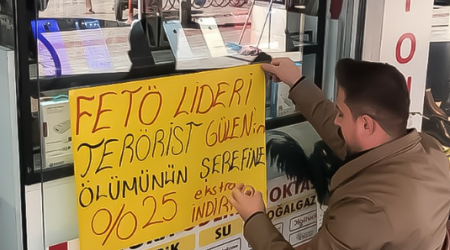 FETÖ LİDERİ
TERÖRİST GÜLENİN
ÖLÜMÜNÜN ŞEREFİNE
%25 ekstra
İNDİRİM
OKTASI
DOĞALGAZ
SU